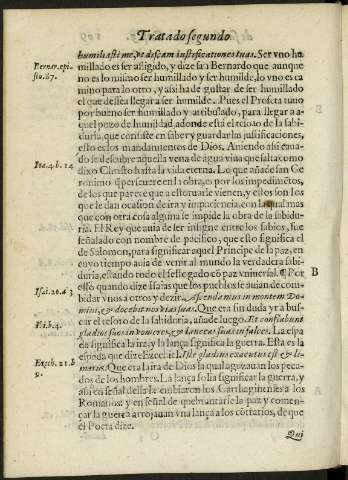 Tratado segundo
humiliasti me, vt discam iustificationes tuas. Ser vno hu
millado es ser afligido, y dize san Bernardo que aunque
no es lo mismo ser humillado y ser humilde, lo vno es ca
mino para lo otro, y assi ha de gustar de ser humillado
el que dessea llegar a ser humilde. Pues el Profeta tuuo
por bueno ser humillado y atribulado, para llegar a a-
quel pozo de humildad, adonde está el tesoro de la sabi-
duria, que consiste en saber y guardar las justificaciones,
esto es los mandamientos de Dios. Aniendo assi cauado
se descubre aquella vena de agua viua que salta como
dixo Christo hasta la vida eterna. Lo que añade san Ge
ronimo q̃ perseuere en la obra, es por los impedimẽtos,
de los que parece que a estoruarle vienen, y ellos son los
que le dan ocasion de ira y impaciencia, con la qual mas
que con otra cosa alguna se impide la obra de la sabidu-
ria. El Rey que auia de ser insigne entre los sabios, fue
señalado con nombre de pacifico, que esto significa el
de Salomon, para significar aquel Principe de la paz, en
cuyo tiempo auia de venir al mundo la verdadera sabi-
duria, estando todo el sossegado cõ paz vniuersal. ¶ Por
esso quando dize Isaias que los pueblos se auian de com-
bidar vnos a otros y dezir. Ascendamus in montem Do-
mini, & docebit nos vias suas. Que era sin duda yr a bus-
car el tesoro de la sabiduria, añade luego. Et conflabunt
gladios suos in vomeres, & lanceas suas in falces. La espa
da significa la ira, y la lança significa la guerra. Esta es la
espada que dize Ezechiel. Iste gladius exacutus est & li-
matus. Que era la ira de Dios la qual aguzauan los peca-
dos de los hombres. La lança solia significar la guerra, y
assi en señal della le embiaron los Cartaginenses a los
Romanos: y en señal de quebrantarse la paz y comen-
çar la guerra arrojauan vna lança a los cõtrarios, de que
el Poeta dize.
Qui
Bernar. epi-
sto. 87.
Ioa. 4. b. 14
B
Isai. 2. a. 3
Ezech. 21. b
9.